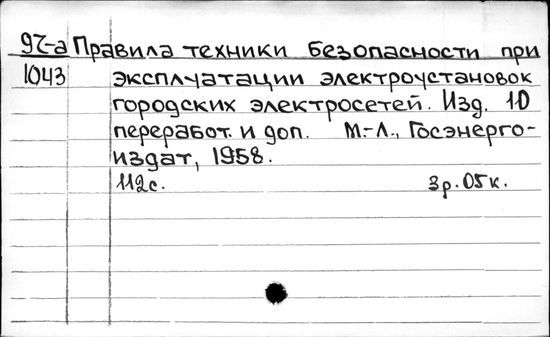 97-а Правила техники безопасности при
1043 эксплуатации электроустановок
городских электросетей. Изд. 10
переработ. и доп. М.-Л., Госэнерго-
издат, 1958.
112с. 3р.05к.